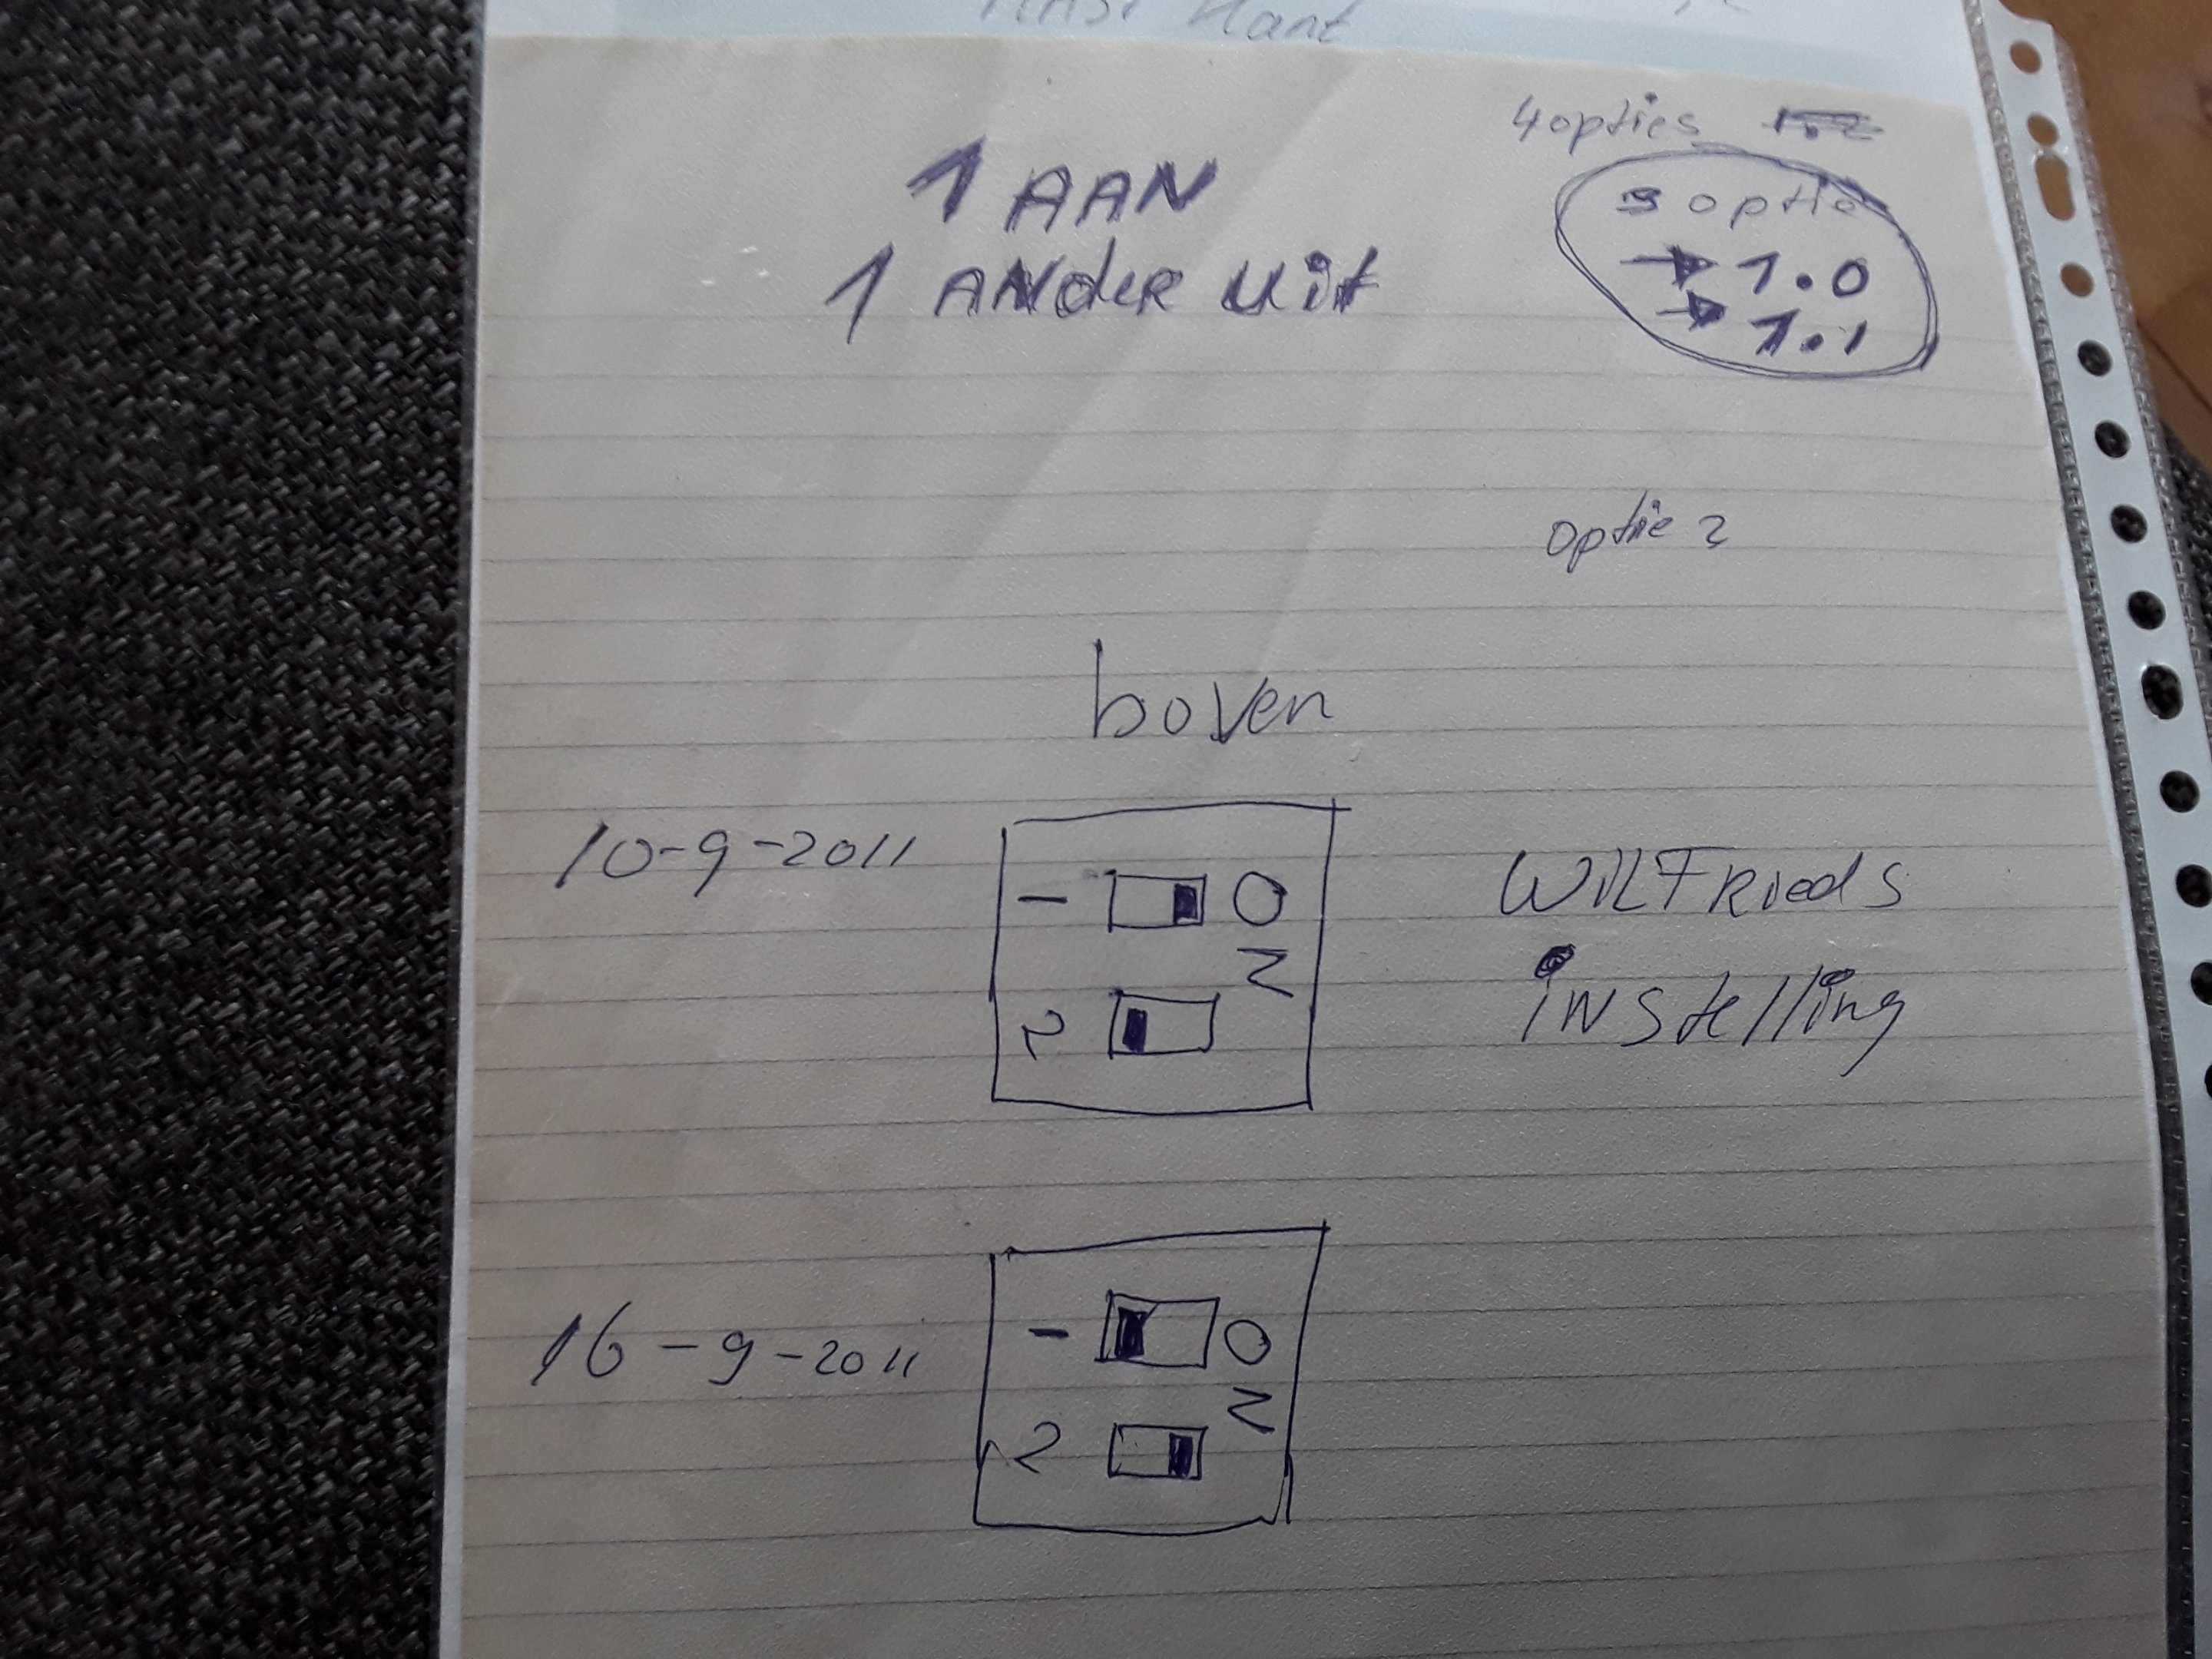 Kant
4 opties
1 AAN
3 optie
1 ANder uit
→ 1.0
→ 1.1
optie 2
boven
10-9-2011
1 O
N
2
WILFRieds
iNStelling
16-9-2011
1 O
N
2